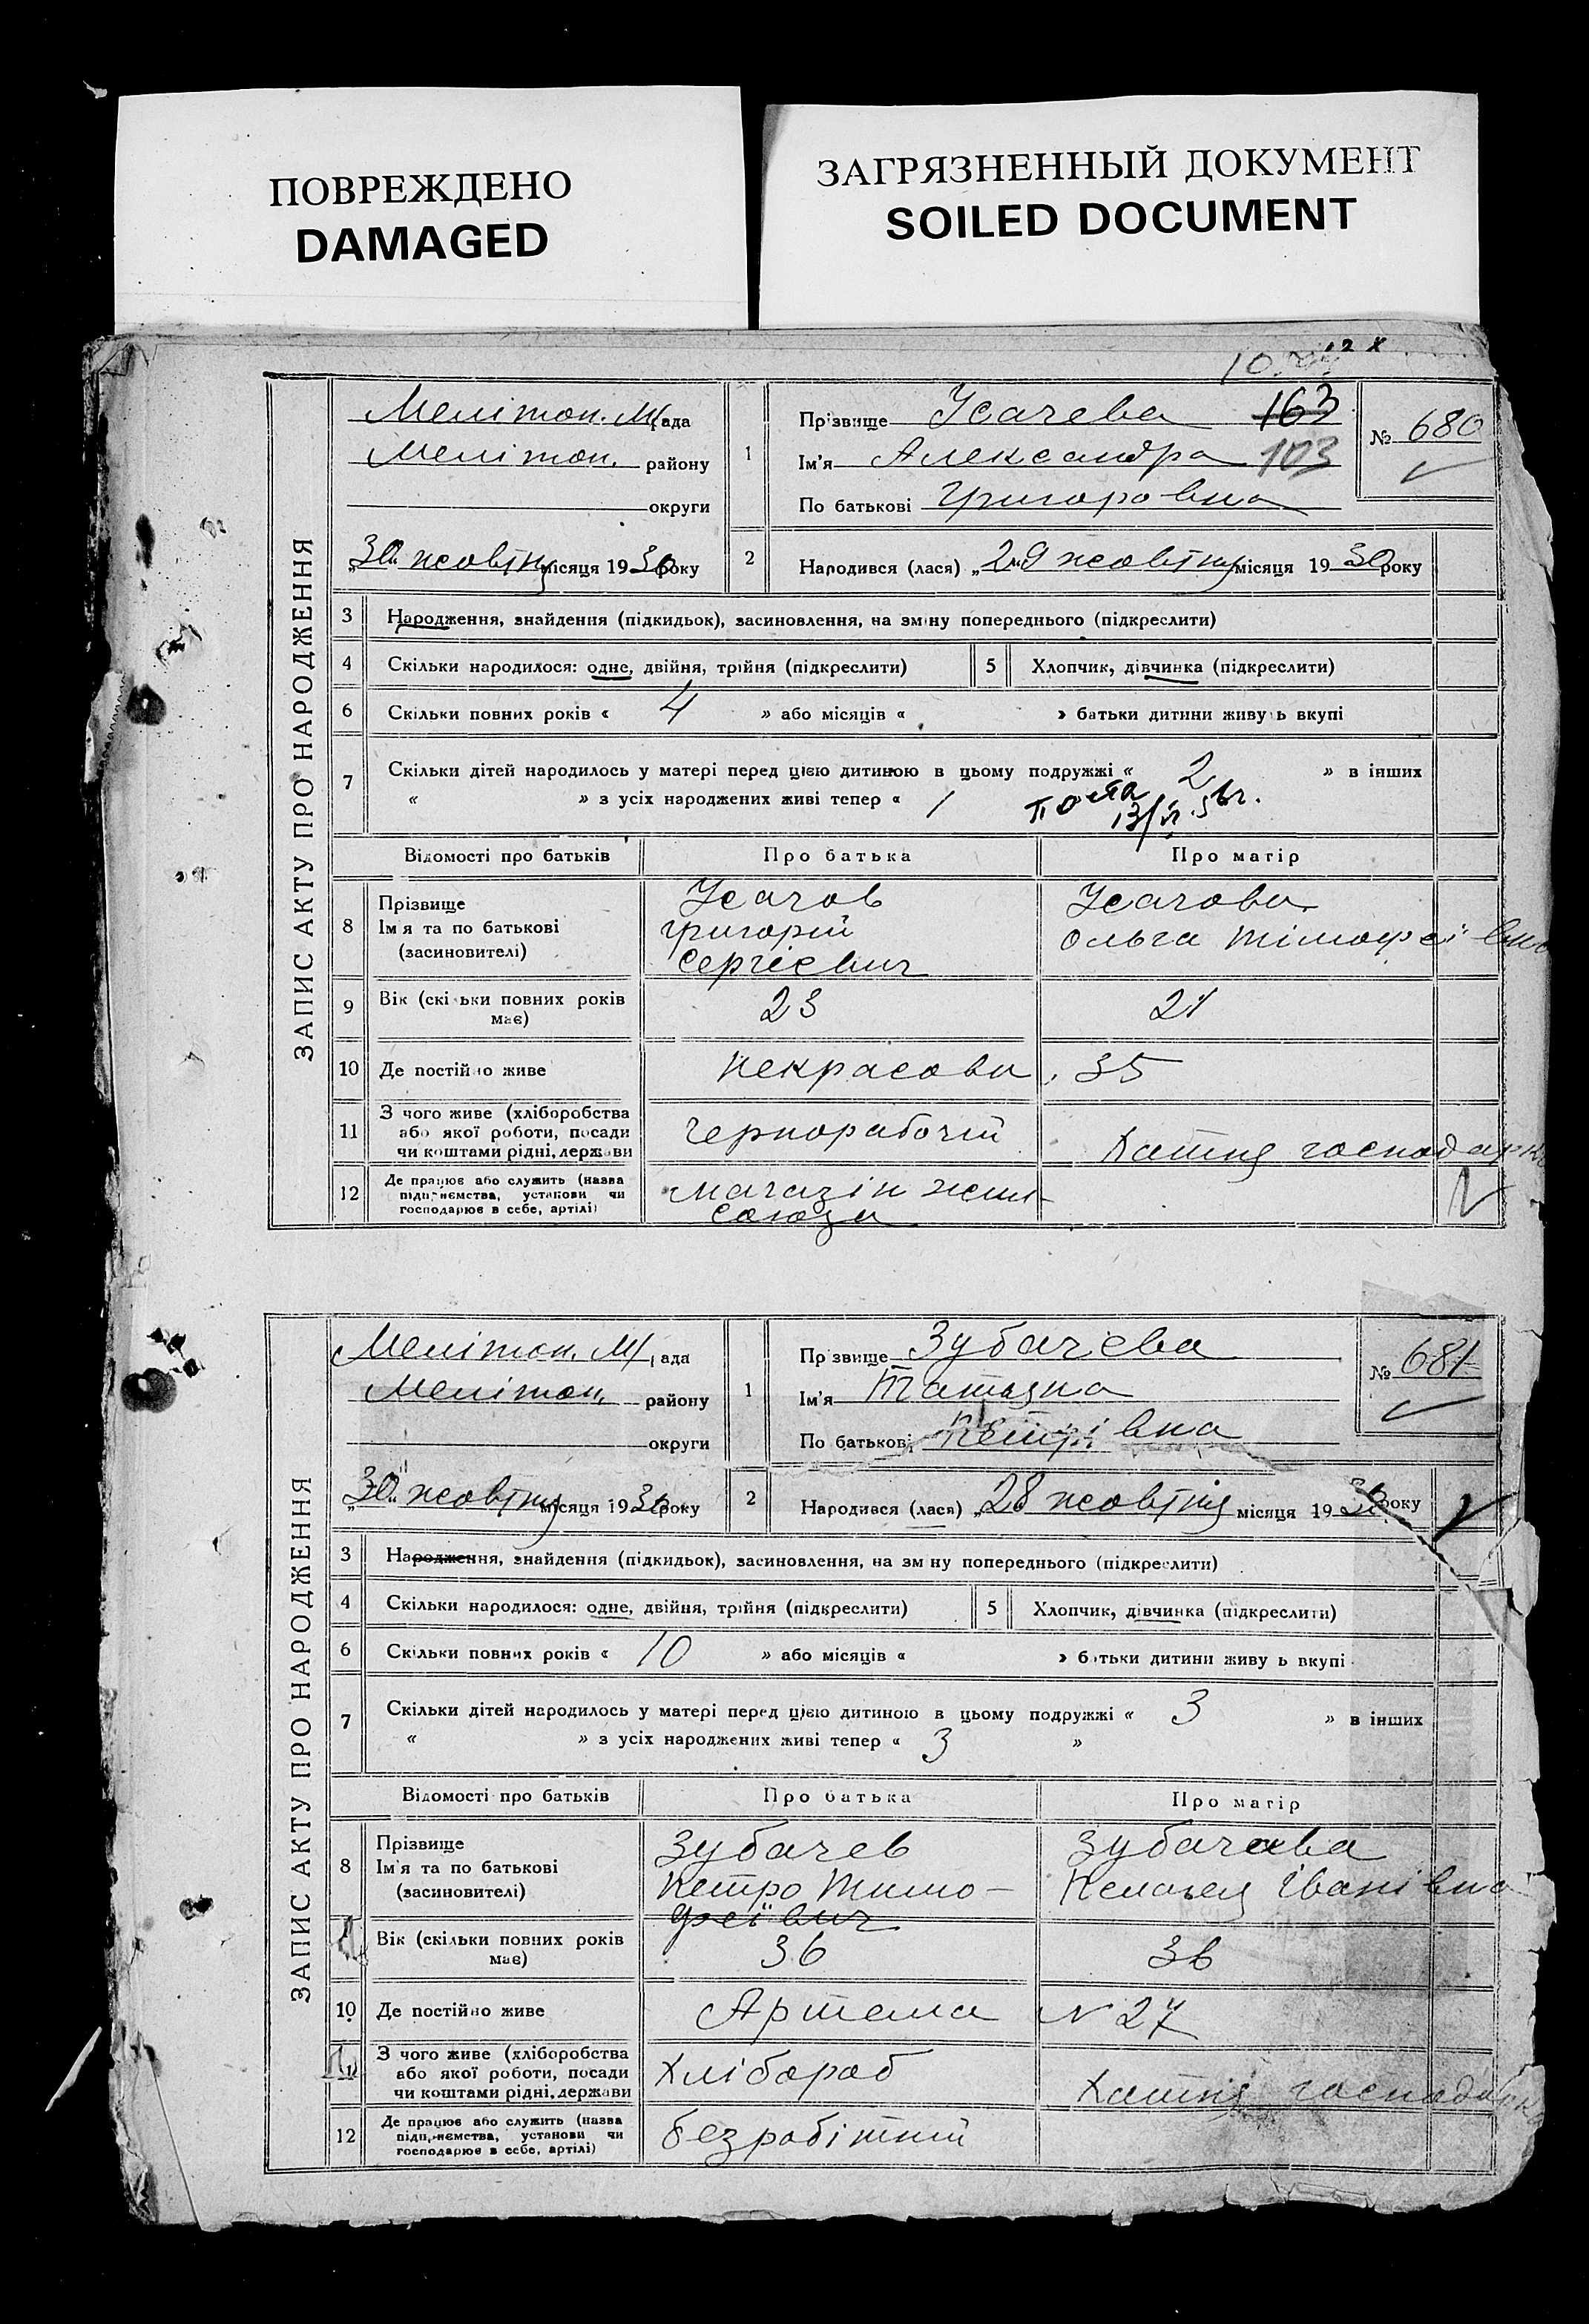 ПОВРЕЖДЕНО
DAMAGED
ЗАГРЯЗНЕННЫЙ ДОКУМЕНТ
SOILED DOCUMENT
ЗАПИС АКТУ ПРО НАРОДЖЕННЯ
Мелітоп. М/рада
Мелітоп. району
округи
„30" жовтня місяця 1930 року
1
Прізвище Усачева 163
Ім'я Александра 103
По батькові Григоровна
№ 680
2
Народився (лася) „29 жовтня місяця 1930 року
3 Народження, знайдення (підкидьок), засиновлення, на зміну попереднього (підкреслити)
4 Скільки народилося: одне, двійня, трійня (підкреслити) 5 Хлопчик, дівчинка (підкреслити)
6 Скільки повних років « 4 » або місяців « » батьки дитини живуть вкупі
7 Скільки дітей народилось у матері перед цією дитиною в цьому подружжі « 2 » в інших
« » з усіх народжених живі тепер « 1
Відомості про батьків Про батька Про матір
8 Прізвище
Ім'я та по батькові
(засиновителі)
Усачов
Григорій
Сергієвич
Усачова
Ольга Тімофеївна
9 Вік (скільки повних років має) 23 21
10 Де постійно живе Некрасова, 35
11 З чого живе (хліборобства
або якої роботи, посади
чи коштами рідні, держави
Чернорабочій
Хатня господарка
12 Де працює або служить (назва
підприємства, установи чи
господарює в себе, артілі)
магазін жил-
союза
ЗАПИС АКТУ ПРО НАРОДЖЕННЯ
Мелітоп. М/рада
Мелітоп. району
округи
„30" жовтня місяця 1930 року
1
Прізвище Зубачєва
Ім'я Татьяна
По батькові Петрівна
№ 681
2
Народився (лася) „28 жовтня місяця 1930 року
3 Народження, знайдення (підкидьок), засиновлення, на зміну попереднього (підкреслити)
4 Скільки народилося: одне, двійня, трійня (підкреслити) 5 Хлопчик, дівчинка (підкреслити)
6 Скільки повних років « 10 » або місяців « » батьки дитини живуть вкупі
7 Скільки дітей народилось у матері перед цією дитиною в цьому подружжі « 3 » в інших
« » з усіх народжених живі тепер « 3 »
Відомості про батьків Про батька Про матір
8 Прізвище
Ім'я та по батькові
(засиновителі)
Зубачев
Петро Тимо-
феївич
Зубачева
Пелагея Іванівна
Вік (скільки повних років має) 36 36
10 Де постійно живе Артема N 27
11 З чого живе (хліборобства
або якої роботи, посади
чи коштами рідні, держави
Хлібороб
Хатня господарка
12 Де працює або служить (назва
підприємства, установи чи
господарює в себе, артілі)
безробітний